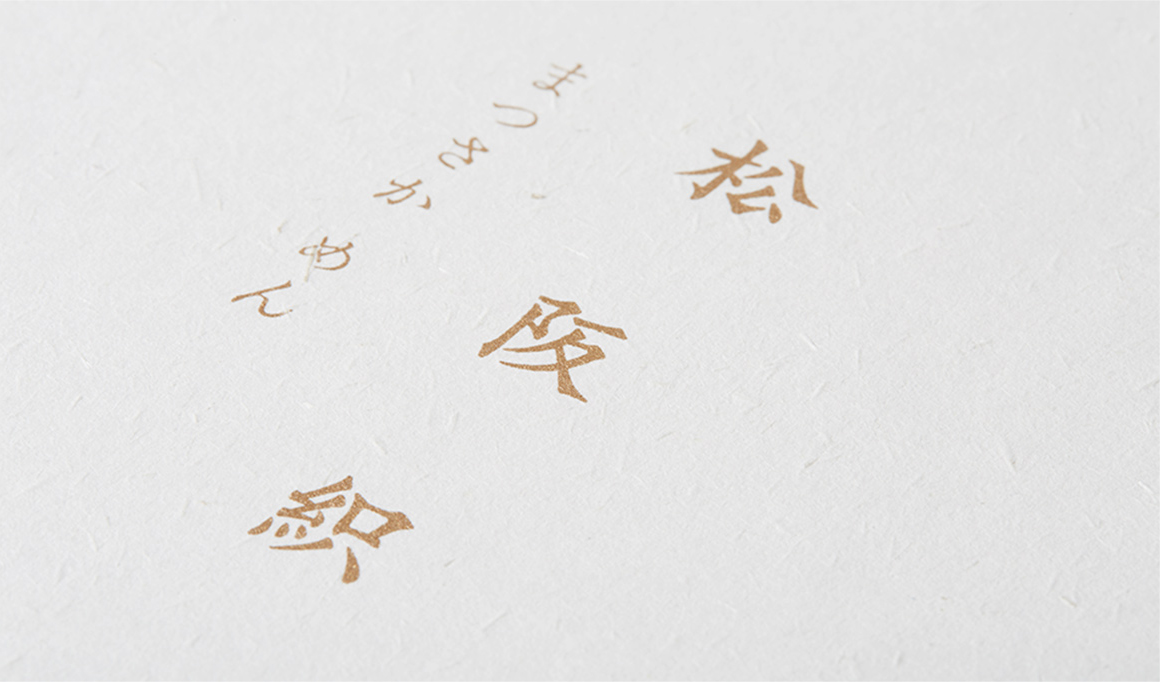 松阪
まつさか めん